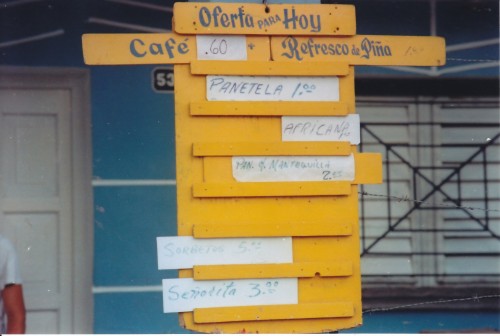 Oferta PARA Hoy
Café .60 Refresco de Piña 1.00
53
PANETELA 1.00
AFRICANA
PAN g MANTEQUILLA
2.00
SORBETOS 5.00
Señorita 3.00